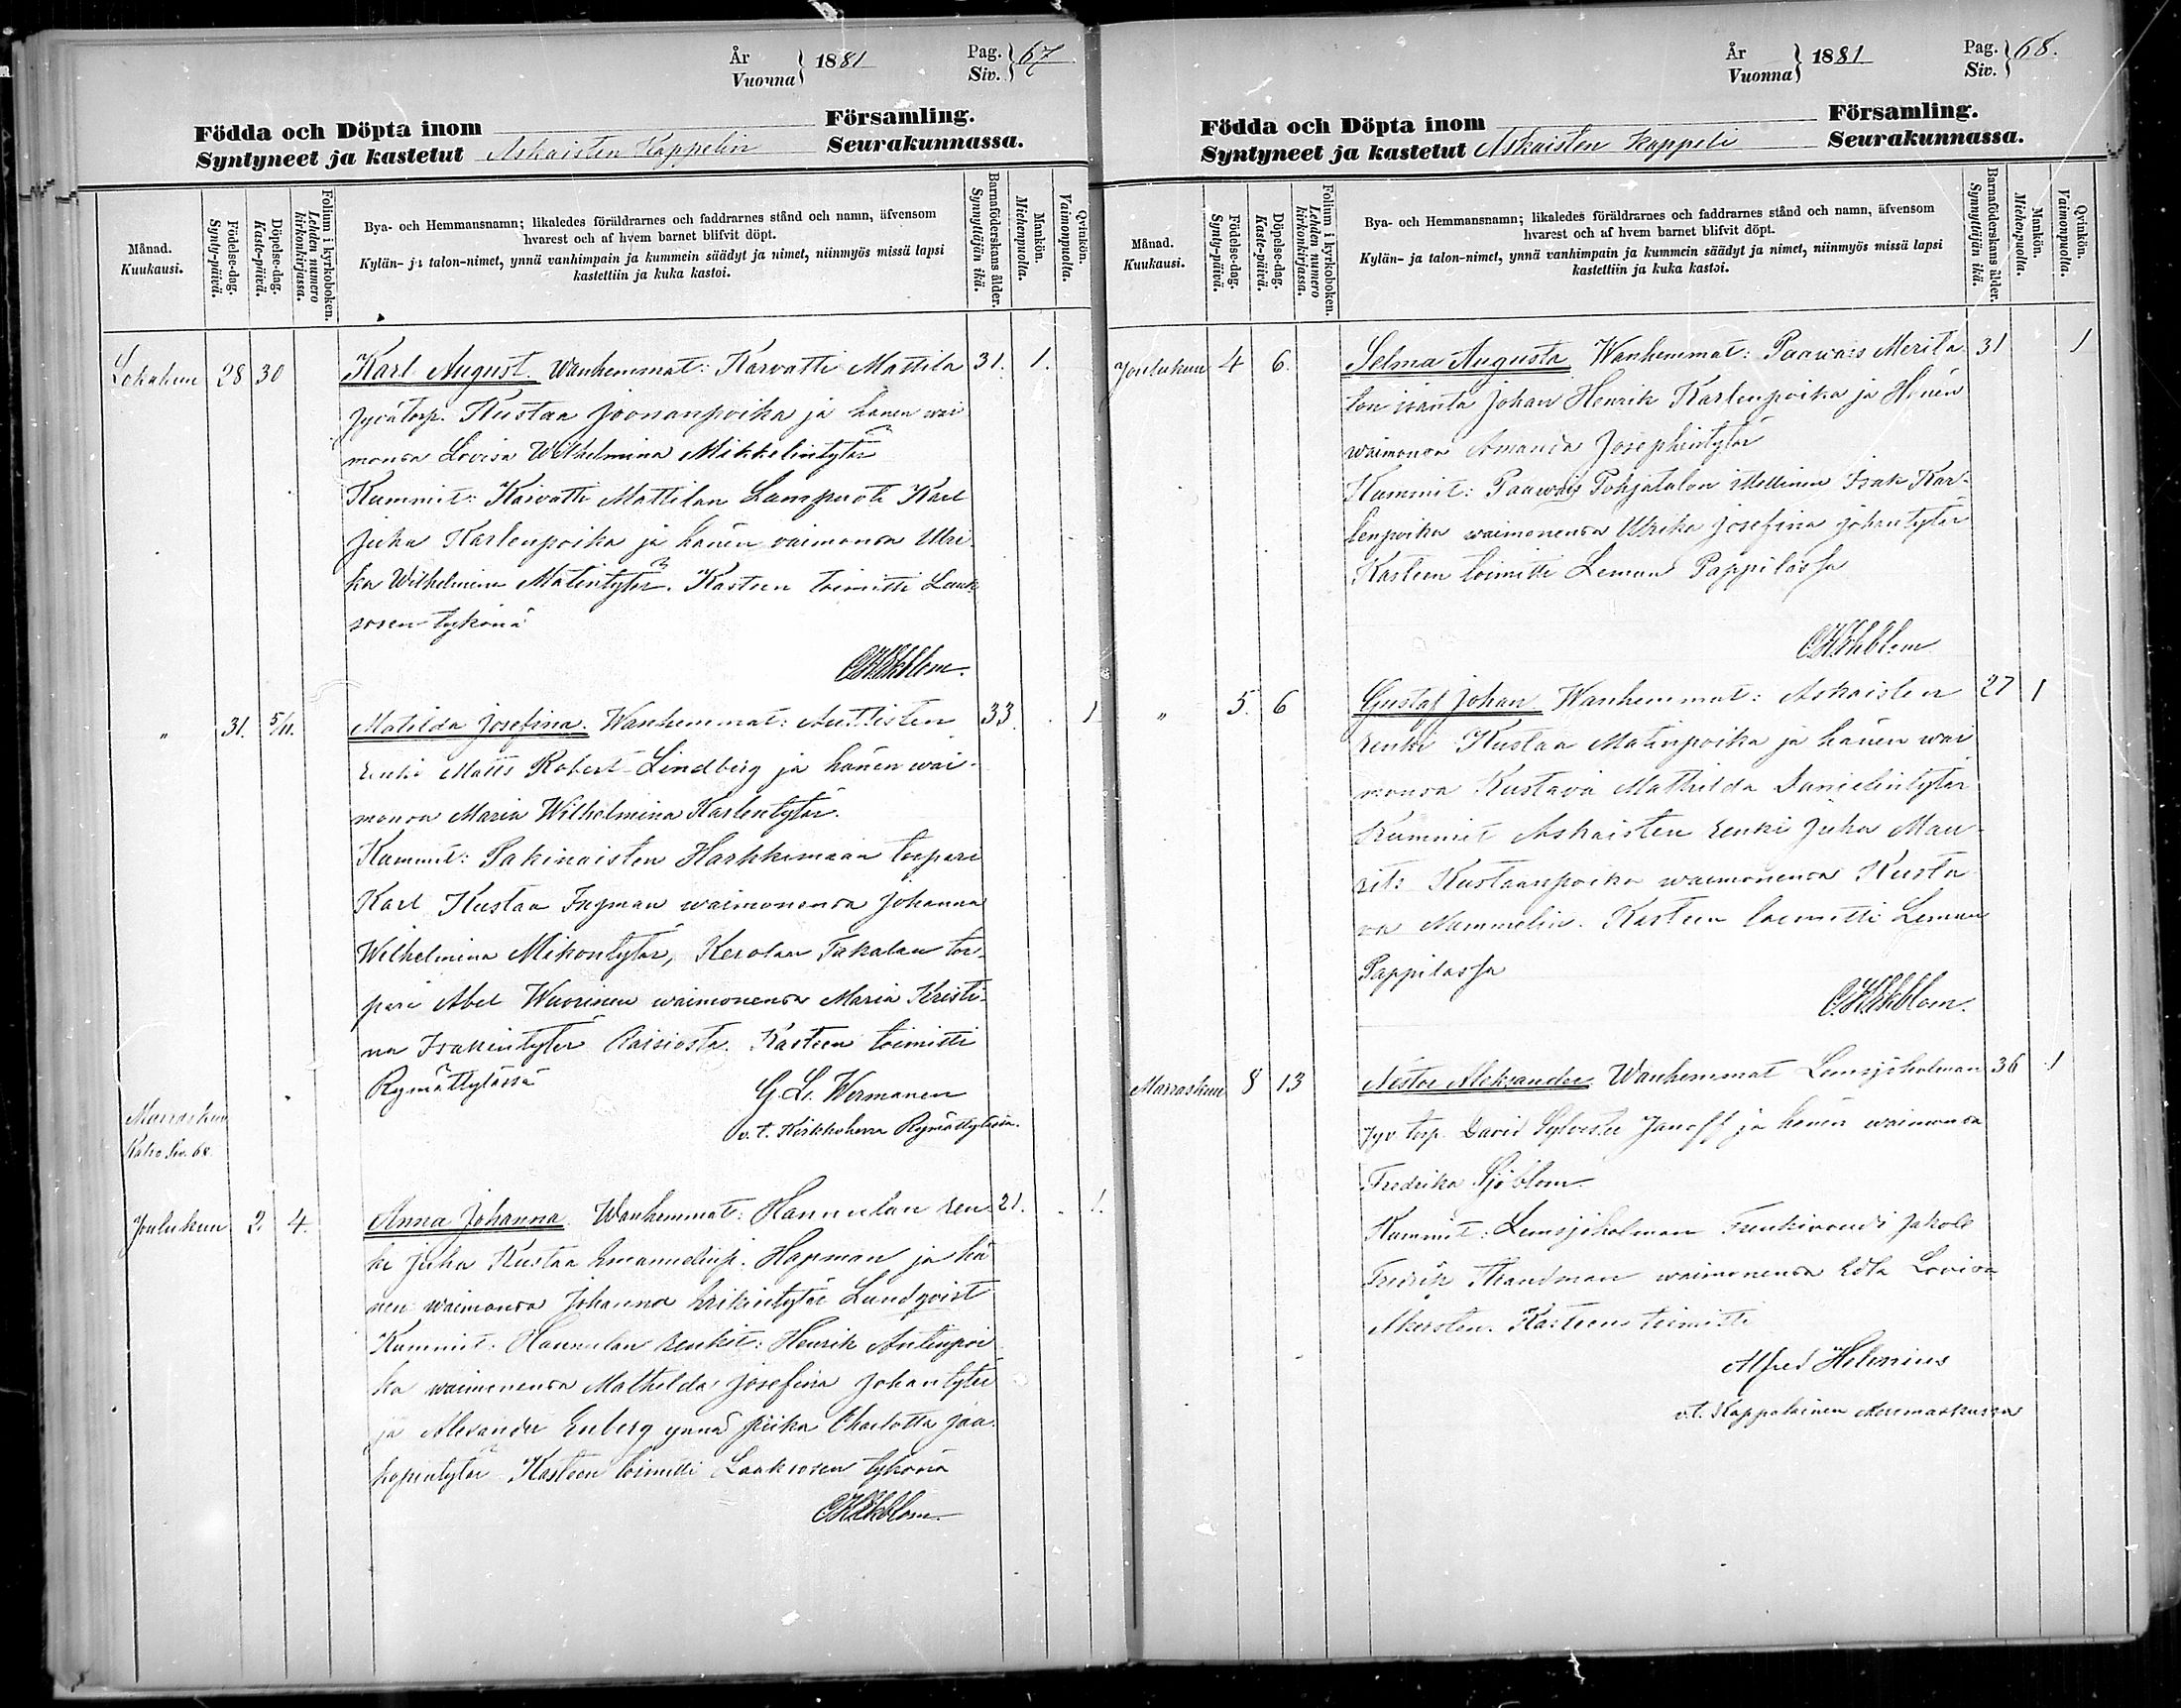 År
Vuonna } 1881
Pag.
Siv. } 67
Födda och Döpta inom Församling.
Syntyneet ja kastetut Askaisten Kappelin Seurakunnassa.
Månad.
Kuukausi.
Födelse-dag.
Synty-päivä.
Döpelse-dag.
Kaste-päivä.
Folium i kyrkoboken.
Lehden numero
kirkonkirjassa.
Bya- och Hemmansnamn; likaledes föräldrarnes och faddrarnes stånd och namn, äfvensom
hvarest och af hvem barnet blifvit döpt.
Kylän- ja talon-nimet, ynnä vanhimpain ja kummein säädyt ja nimet, niinmyös missä lapsi
kastettiin ja kuka kastoi.
Barnaföderskans ålder.
Synnyttäjän ikä.
Mankön.
Miehenpuolia.
Qvinkön.
Vaimonpuolia.
Lokakuu 28 30 Karl August. Wanhemmat: Karvatti Mattila 31. 1.
Jyvätorp. Kustaa Joonanpoika ja hänen wai
monsa Lovisa Wilhelmina Mikkelintytär
Kummit: Karvatti Mattilan Lampuoti Karl
Juha Karlenpoika ja hänen vaimonsa Ulri-
ka Wilhelmina Matintytär. Kasteen toimitti Laak
sosen tykönä
C.H. Ekblom.
" 31. 5/11. Matilda Josefina. Wanhemmat: Auttisten 33. 1
renki Matts Robert Lindberg ja hänen wai-
monsa Maria Wilhelmina Karlentytär.
Kummit: Pakinaisten Harkkimaan torpari
Karl Kustaa Ingman waimonensa Johanna
Wilhelmina Mikontytär, Kerolan Takalan tor-
pari Abel Wuorinen waimonensa Maria Kristi-
na Isakintytär Raisiosta. Kasteen toimitti
Rymättylässä G. L. Wermanen
v.t. Kirkkoherra Rymättylässä.
Marraskuu
Katso Siv. 68.
Joulukuu 2. 4. Anna Johanna Wanhemmat: Hannulan ren 21. 1.
ki Juha Kustaa Emanuelinp. Hapman ja hä
nen waimonsa Johanna Erikintytär Lundqvist
Kummit: Hannulan renkit: Henrik Antinpoi
ka waimonensa Mathilda Josefina Johantytär
ja Alexander Enberg ynnä piika Charlotta Jaa-
kopintytär Kasteen toimitti Laaksosen tykönä
C.H. Ekblom.
År
Vuonna } 1881
Pag.
Siv. } 68.
Födda och Döpta inom Församling.
Syntyneet ja kastetut Askaisten kappeli Seurakunnassa.
Månad.
Kuukausi.
Födelse-dag.
Synty-päivä.
Döpelse-dag.
Kaste-päivä.
Folium i kyrkoboken.
Lehden numero
kirkonkirjassa.
Bya- och Hemmansnamn; likaledes föräldrarnes och faddrarnes stånd och namn, äfvensom
hvarest och af hvem barnet blifvit döpt.
Kylän- ja talon-nimet, ynnä vanhimpain ja kummein säädyt ja nimet, niinmyös missä lapsi
kastettiin ja kuka kastoi.
Barnaföderskans ålder.
Synnyttäjän ikä.
Mankön.
Miehenpuolia.
Qvinkön.
Vaimonpuolia.
Joulukuu 4 6. Selma Augusta Wanhemmat: Paawais Merita 31 1
lon isäntä Johan Henrik Karlenpoika ja Hänen
waimonsa Amanda Josephintytär
Kummit: Paawais Pohjatalon Isak Kar-
lenpoika waimonensa Ulrika Josefina Johantytär
Kasteen toimitti Lemun Pappilassa
C.H. Ekblom
" 5. 6 Gustaf Johan Wanhemmat: Askaisten 27 1
renki Kustaa Matinpoika ja hänen wai
monsa Kustava Mathilda Danielintytär
Kummit Askaisten renki Juha Mau-
rits Kustaanpoika waimonensa Kusta
va Nammelin. Kasteen toimitti Lemun
Pappilassa
C.H. Ekblom.
Marraskuu 8 13 Nestor Aleksander Wanhemmat Lemsjöholman 36 1
Jyv. torp. David Sylvester Janoff ja hänen waimonsa
Fredrika Sjöblom
Kummit: Lemsjöholman Jakob
Fredrik Strandman waimonensa Edla Lovisa
Akersten. Kasteen toimitti
Alfred Helenius
v.t. Kappalainen Merimaskussa